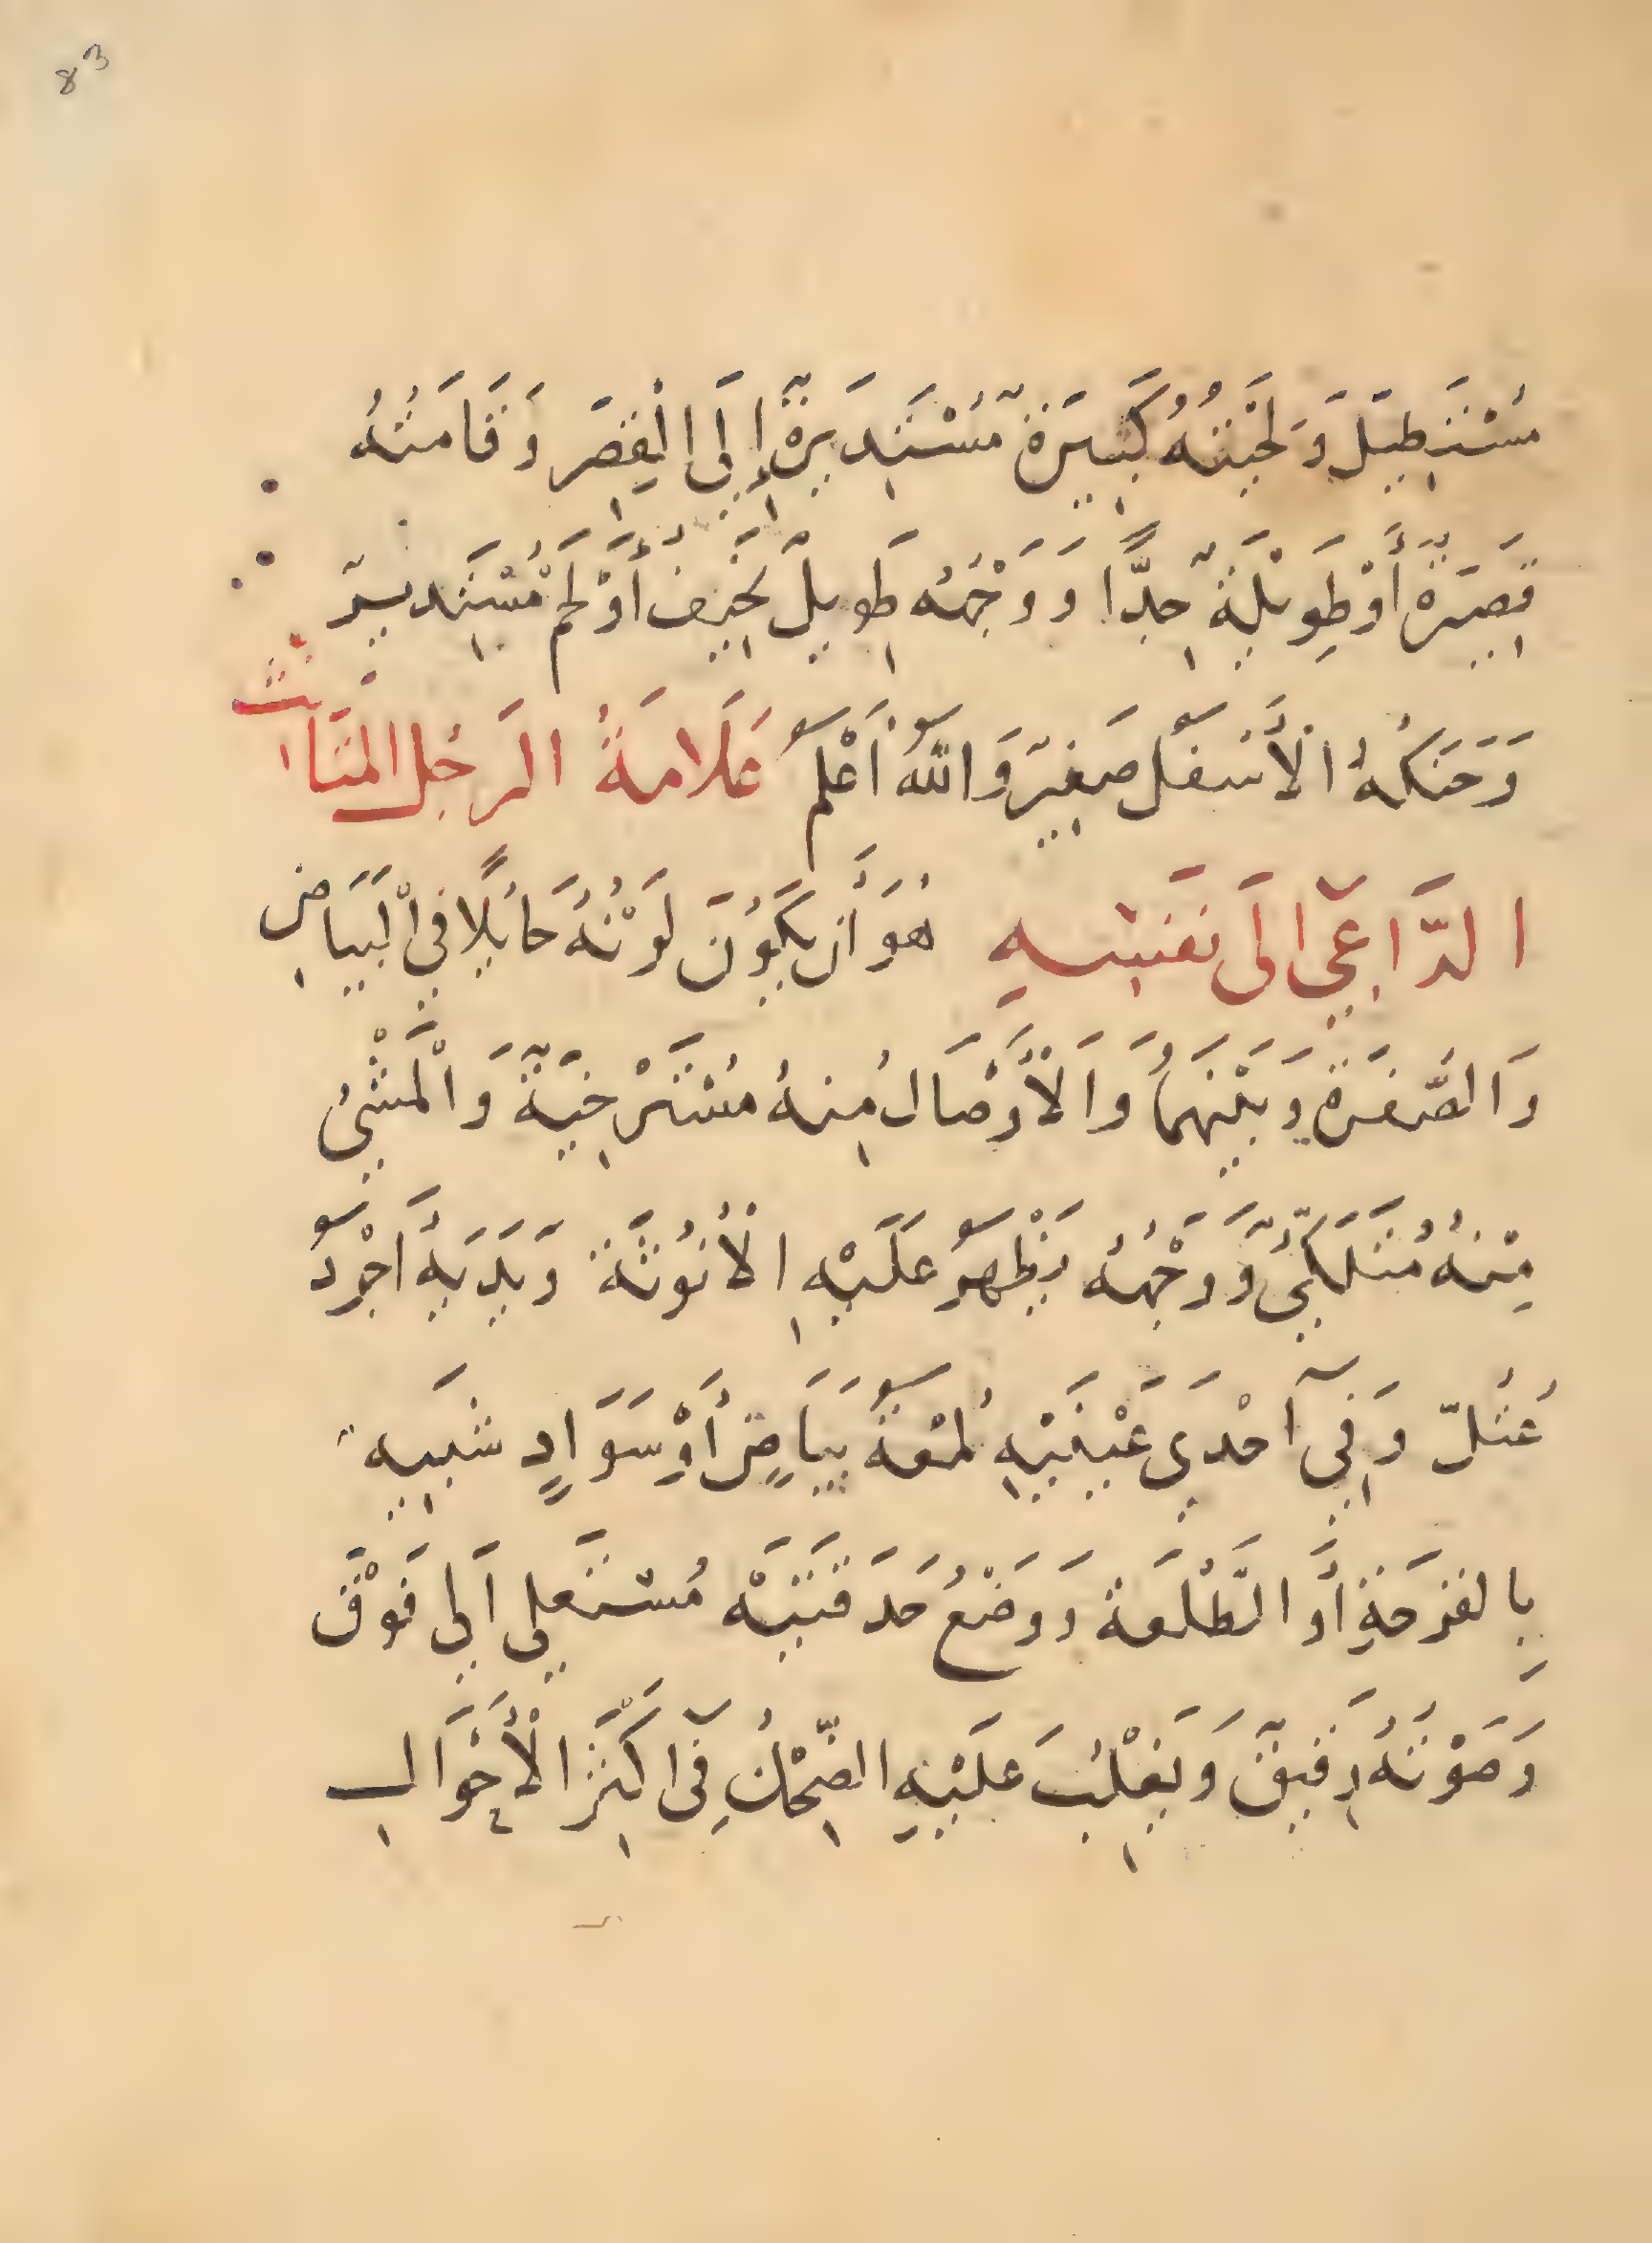 83
مُسْتَطِيلٌ وَلِحْيَتُهُ كَبِيرَةٌ مُسْتَدِيرَةٌ إِلَى الْقِصَرِ وَقَامَتُهُ
قَصِيرَةٌ أَوْ طَوِيلَةٌ جِدًّا وَوَجْهُهُ طَوِيلٌ نَحِيفٌ أَوْ لَمْ مُسْتَدِيرٌ
وَحَنَكُهُ الْأَسْفَلُ صَغِيرٌ وَاللَّهُ أَعْلَمُ عَلَامَةُ الرَّجُلِ المتَانثْ
الدَّاعِي اِلَى نَفْسِهِ هُوَ أَنْ يَكُونَ لَوْنُهُ حَائِلًا فِي الْبَيَاضِ
وَالصُّفْرَةِ وَبَيْنَهُمَا وَالْأَوْصَالُ مِنهُ مُسْتَرْخِيَةٌ وَالْمَشْيُ
مِنْهُ وَوَجْهُهُ يَظْهَرُ عَلَيْهِ الْأُنُوثَةُ وَيَدَيهُ اَجْرَدُ
عُتُلٌّ وَفِي اَحْدَى عَيْنَيْهِ لُمْعَةُ بَيَاضٍ أَوْ سَوَادٍ شَبِيهٍ
بِالْقَرْحَةِ أَوِ الطَّلْعَةِ وَوَضْعُ حَدَقَتَيْهِ مُسْتَعْلِي اَلِى فَوْقَ
وَصَوْتُهُ رَقِيقٌ وَيَغْلِبُ عَلَيْهِ الضَّحْكُ فِي اَكْثَرِ الْأَحْوَالِ